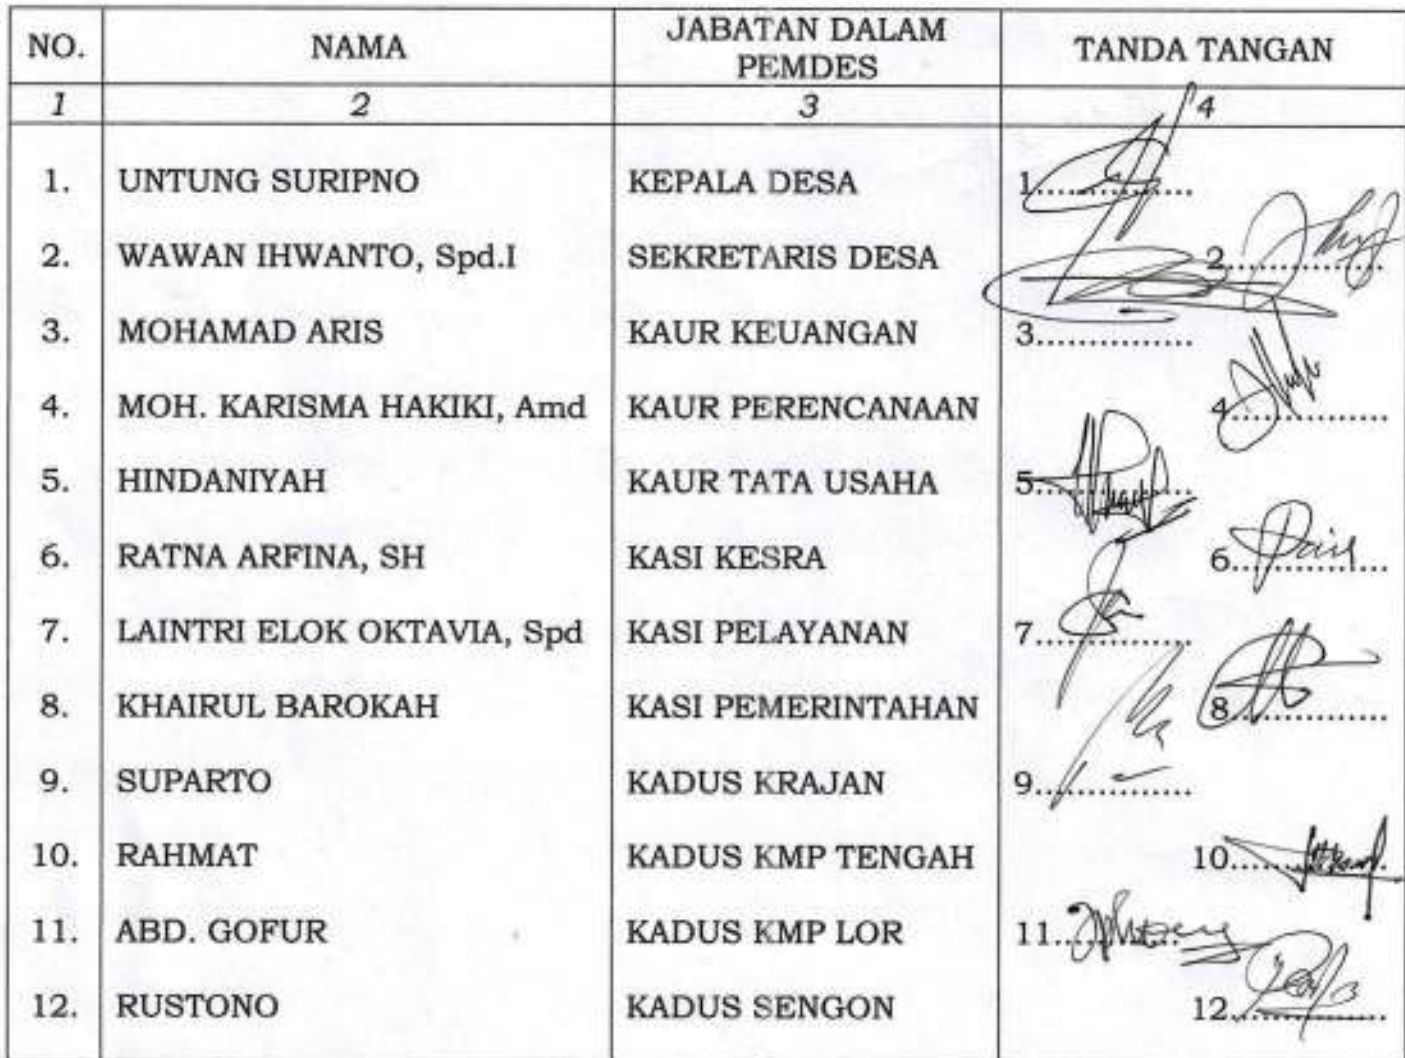 NO. NAMA JABATAN DALAM PEMDES TANDA TANGAN
1 2 3 4
1. UNTUNG SURIPNO KEPALA DESA 1...............
2. WAWAN IHWANTO, Spd.I SEKRETARIS DESA 2...............
3. MOHAMAD ARIS KAUR KEUANGAN 3...............
4. MOH. KARISMA HAKIKI, Amd KAUR PERENCANAAN 4...............
5. HINDANIYAH KAUR TATA USAHA 5...............
6. RATNA ARFINA, SH KASI KESRA 6...............
7. LAINTRI ELOK OKTAVIA, Spd KASI PELAYANAN 7...............
8. KHAIRUL BAROKAH KASI PEMERINTAHAN 8...............
9. SUPARTO KADUS KRAJAN 9...............
10. RAHMAT KADUS KMP TENGAH 10...............
11. ABD. GOFUR KADUS KMP LOR 11...............
12. RUSTONO KADUS SENGON 12...............